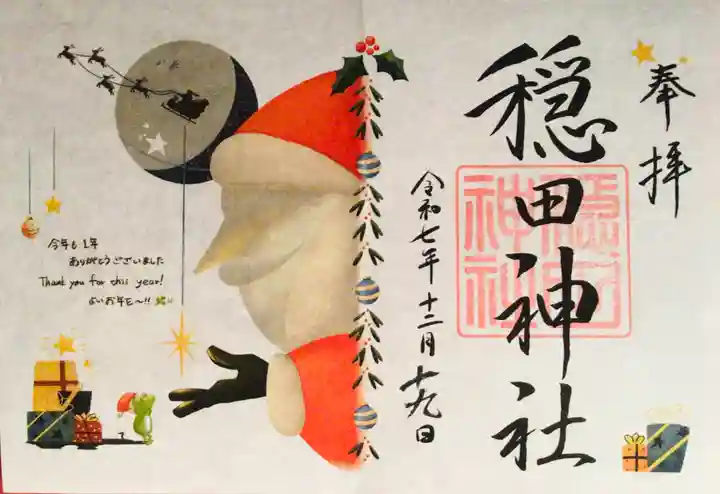 奉拝
穏田神社
穏田
神社
令和七年十二月十九日
今年も1年
ありがとうございました
Thank you for this year!
よいお年を〜!!